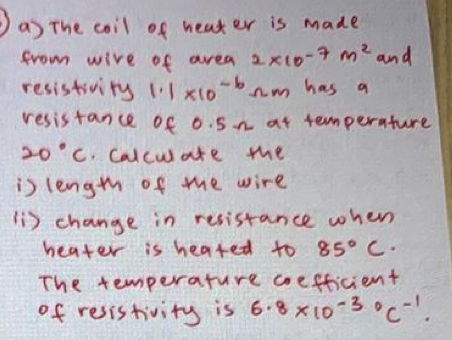 ) a) The coil of heater is made
from wire of area 2×10⁻⁷ m² and
resistivity 1.1 ×10⁻⁶ Ωm has a
resistance of 0.5Ω at temperature
20°C. Calculate the
i) length of the wire
ii) change in resistance when
heater is heated to 85°C.
The temperature coefficient
of resistivity is 6.8 ×10⁻³ °C⁻¹.